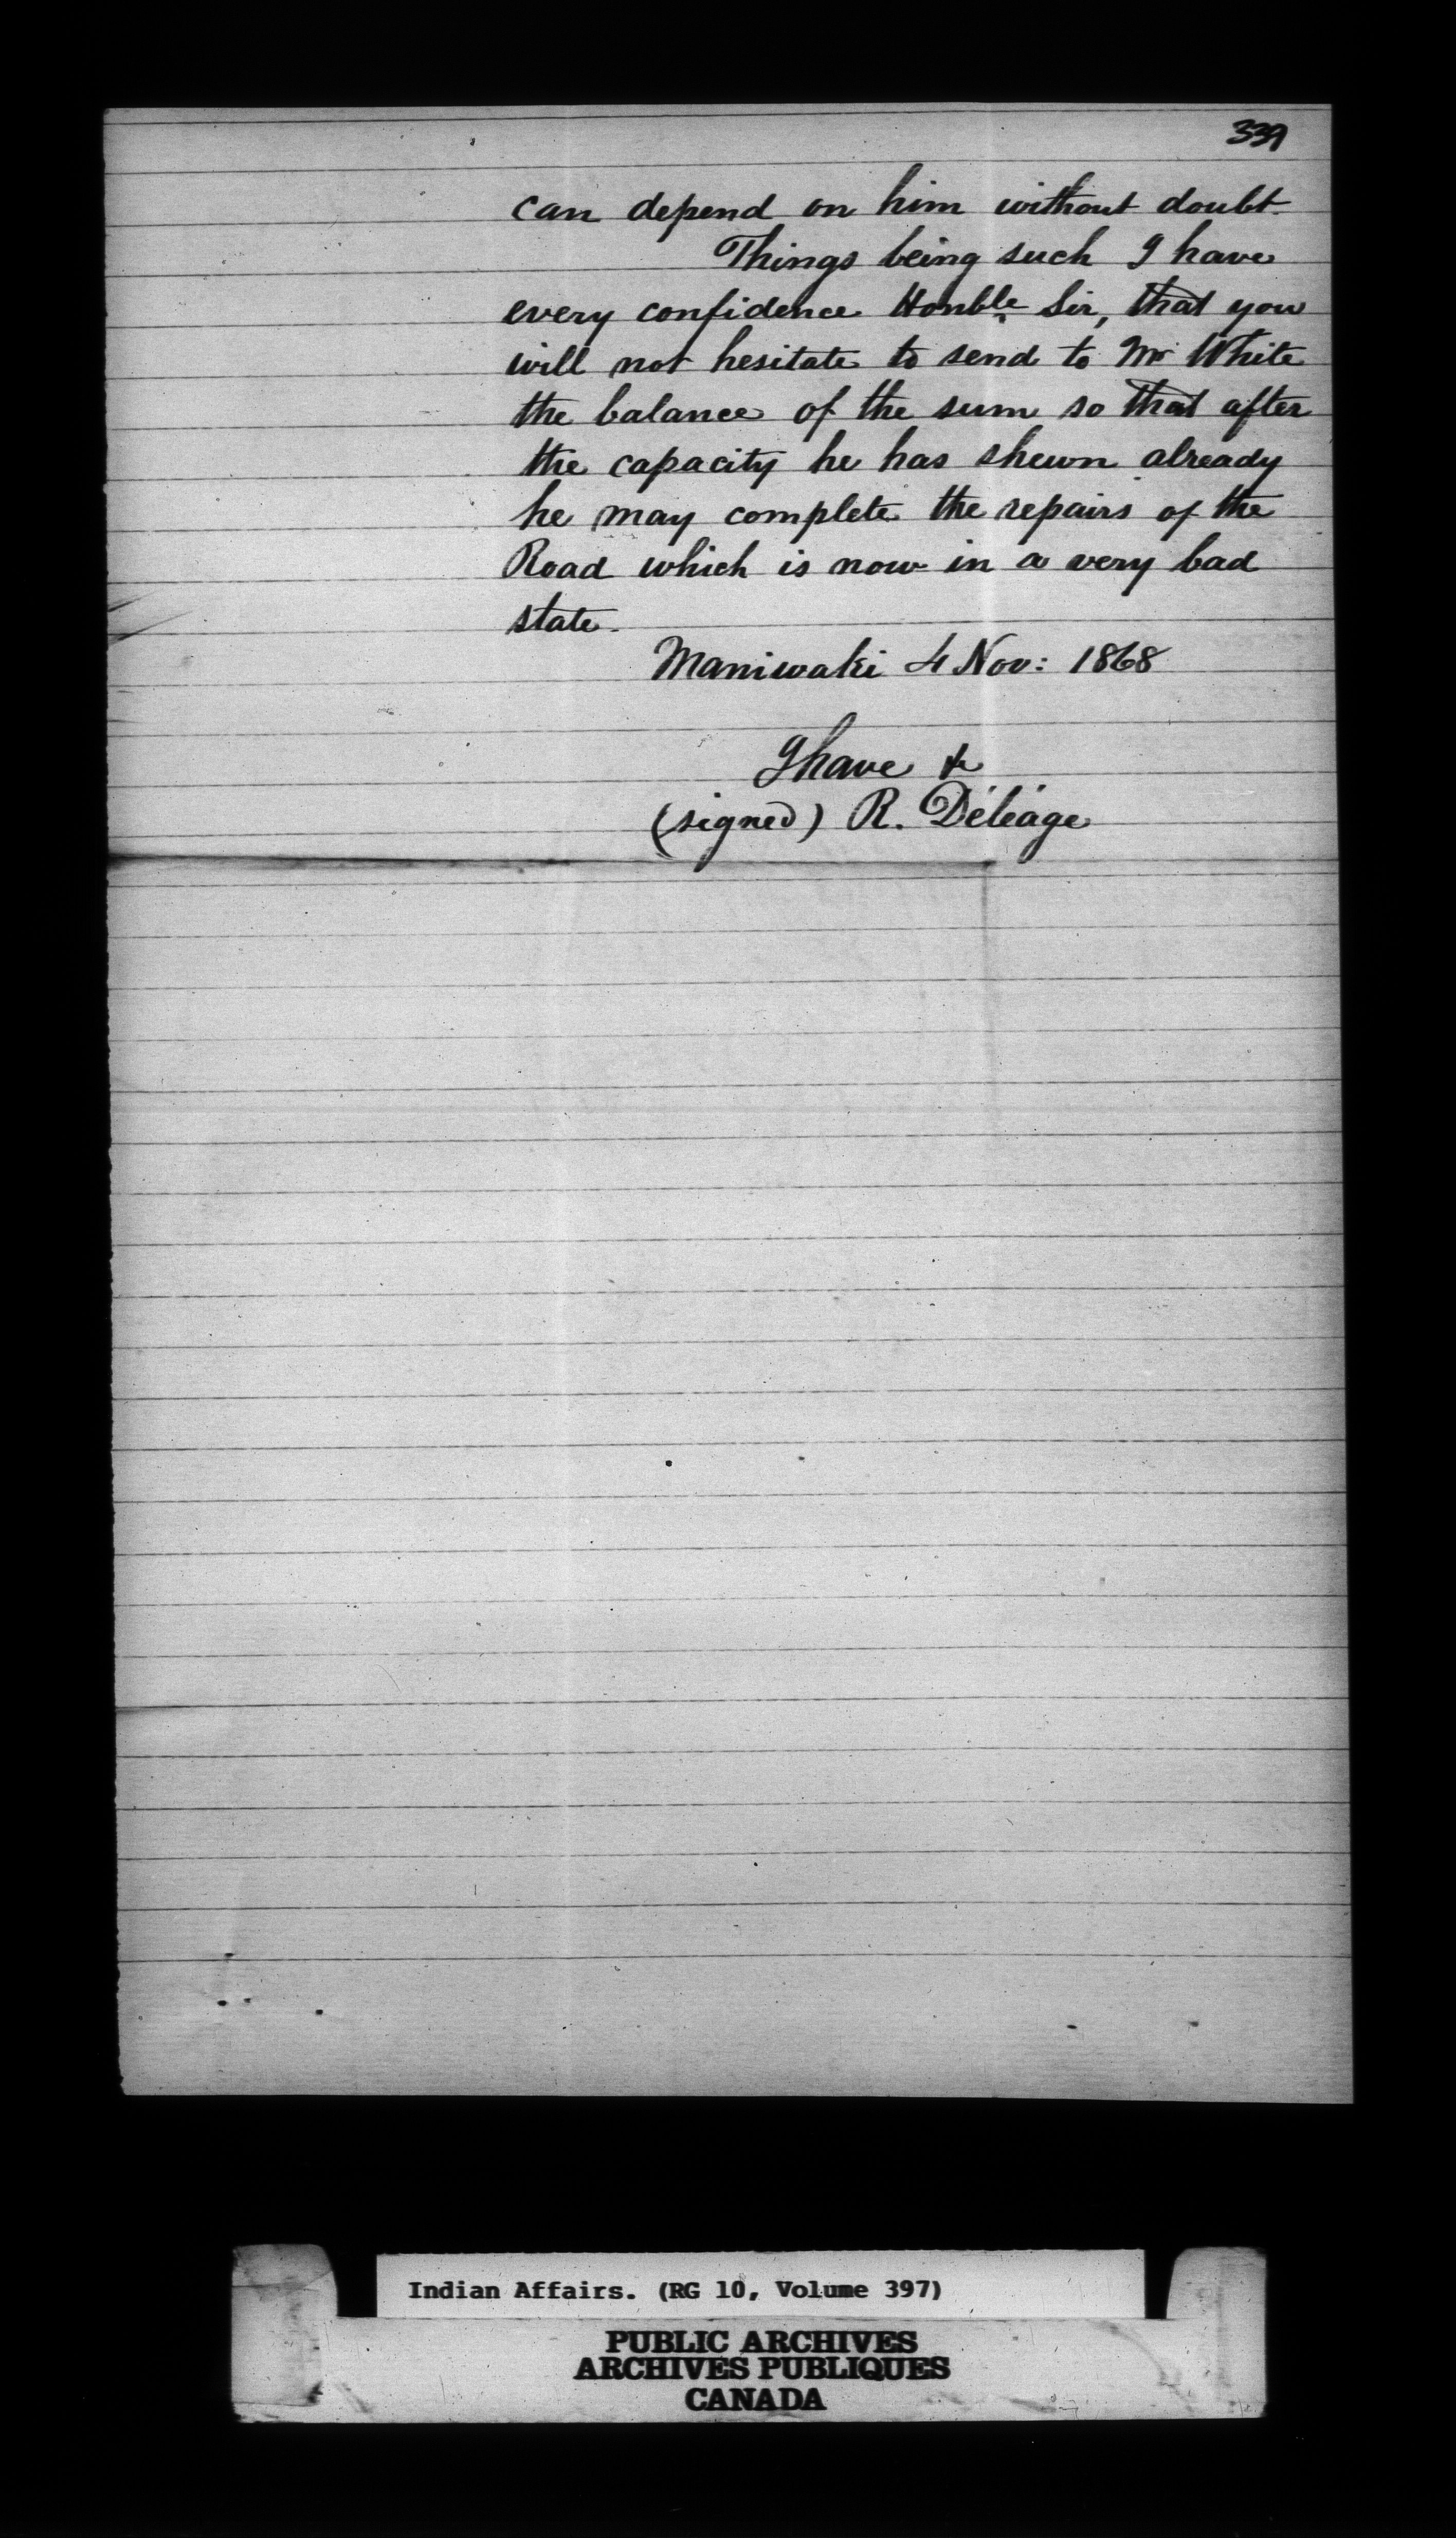 339
can depend on him without doubt.
Things being such I have
every confidence Honble Sir, that you
will not hesitate to send to Mr White
the balance of the sum so that after
the capacity he has shewn already
he may complete the repairs of the
Road which is now in a very bad
state.
Maniwaki 4 Nov: 1868
I have &
(signed) R. Déléage
Indian Affairs. (RG 10, Volume 397)
PUBLIC ARCHIVES
ARCHIVES PUBLIQUES
CANADA